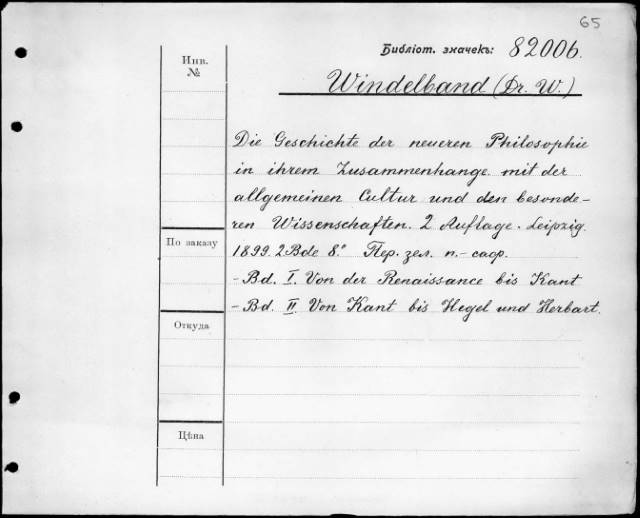 65
Библіот. значекъ: 82006.
Инв.
№
Windelband (Dr. W.)
Die Geschichte der neueren Philosophie
in ihrem Zusammenhange mit der
allgemeinen Cultur und den besonde-
ren Wissenschaften. 2 Auflage. Leipzig.
По заказу
1899. 2 Bde 8.° Пер. зел. п.-сафр.
- Bd. I. Von der Renaissance bis Kant
- Bd. II. Von Kant bis Hegel und Herbart.
Откуда
Цѣна